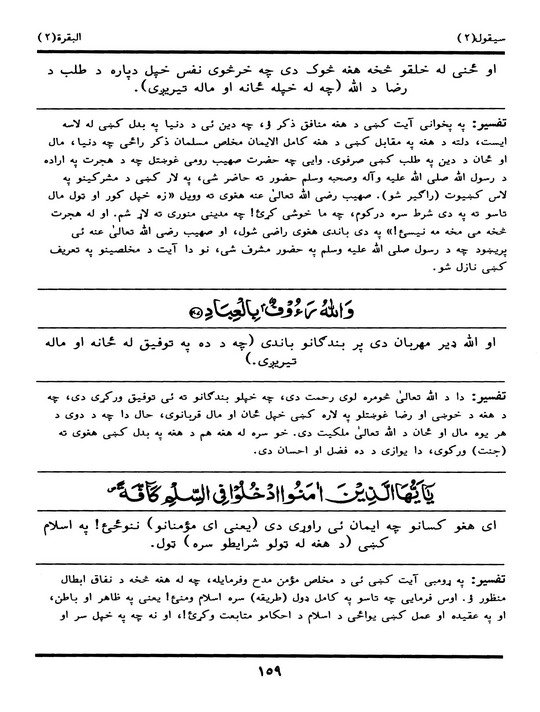 سيقول(٢)
البقرة(٢)
او ځنی له خلقو څخه هغه څوک دی چه خرڅوی نفس خپل دپاره د طلب د
رضا د الله (چه له خپله ځانه او ماله تیریږی).
تفسیر: په پخوانی آیت کښی د هغه منافق ذکر ؤ، چه دین ئی د دنیا په بدل کښی له لاسه
ایست، دلته د هغه په مقابل کښی د هغه کامل الایمان مخلص مسلمان ذکر راځی چه دنیا، مال
او ځان د دین په طلب کښی صرفوی. وایی چه حضرت صهیب رومی غوښتل چه د هجرت په اراده
د رسول الله صلی الله علیه وآله وصحبه وسلم حضور ته حاضر شی، په لار کښی د مشرکینو په
لاس کښیوت (راګیر شو). صهیب رضی الله تعالیٰ عنه هغوی ته وویل «زه خپل کور او ټول مال
تاسو ته په دی شرط سره درکوم، چه ما خوشی کړئ! چه مدینی منوری ته لاړ شم. او له هجرت
څخه می مخه مه نیسئ!» په دی باندی هغوی راضی شول، او صهیب رضی الله تعالیٰ عنه ئی
پریښود چه د رسول صلی الله علیه وسلم په حضور مشرف شی، نو دا آیت د مخلصینو په تعریف
کښی نازل شو.
وَاللهُ رَءُوْفٌۢ بِالْعِبَادِ ﴿۲۰۷﴾
او الله ډیر مهربان دی پر بندګانو باندی (چه د ده په توفیق له ځانه او ماله
تیریږی.)
تفسیر: دا د الله تعالیٰ څومره لوی رحمت دی، چه خپلو بندګانو ته ئی توفیق ورکړی دی، چه
د هغه د خوښی او رضا غوښتلو په لاره کښی خپل ځان او مال قربانوی، حال دا چه د دوی د
هر یوه مال او ځان د الله تعالیٰ ملکیت دی. خو سره له هغه هم د هغه په بدل کښی هغوی ته
(جنت) ورکوی، دا یوازی د ده فضل او احسان دی.
يٰٓاَيُّهَا الَّذِيْنَ اٰمَنُوا ادْخُلُوْا فِي السِّلْمِ كَآفَّةً
ای هغو کسانو چه ایمان ئی راوړی دی (یعنی ای مؤمنانو) ننوځئ! په اسلام
کښی (د هغه له ټولو شرایطو سره) ټول.
تفسیر: په ړومبی آیت کښی ئی د مخلص مؤمن مدح وفرمایله، چه له هغه څخه د نفاق ابطال
منظور ؤ. اوس فرمایی چه تاسو په کامل ډول (طریقه) سره اسلام ومنئ! یعنی په ظاهر او باطن،
او په عقیده او عمل کښی یوائځی د اسلام د احکامو متابعت وکړئ!، او نه چه په خپل سر او
١٥٩